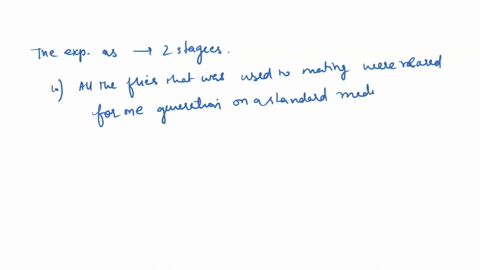 The exp. as → 2 stages.
u) All the flies that was used to mating were reared
for one generation on a standard medi